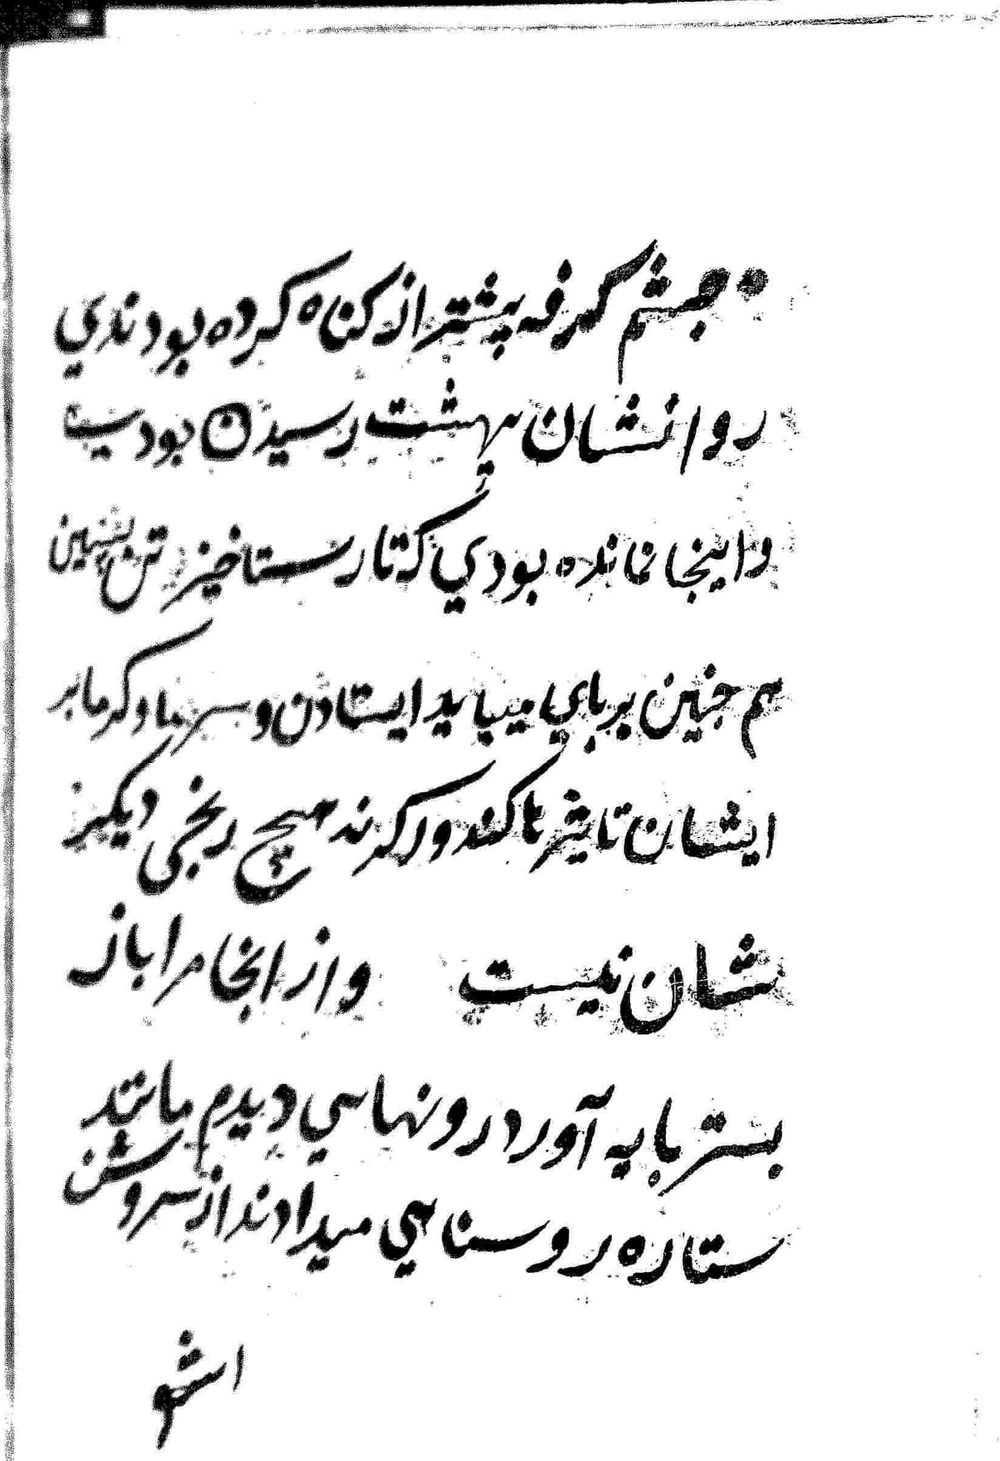 جشم کرفه پیشتر از کناه کرده بودندي
روانشان بهشت رسیدن بودي
و اینجا نمانده بودي که تا رستاخیز تن پسین
هم جنین بر پاي میباید ایستادن و سرما و کرما بر
ایشان تاثیرها کند و دکرند هیچ رنجی دیکر
شان نیست و از انجا مرا باز
بستر پایه آورد رونهایي دیدم مانند
ستاره روسناهي میدادند از سروش
اشو